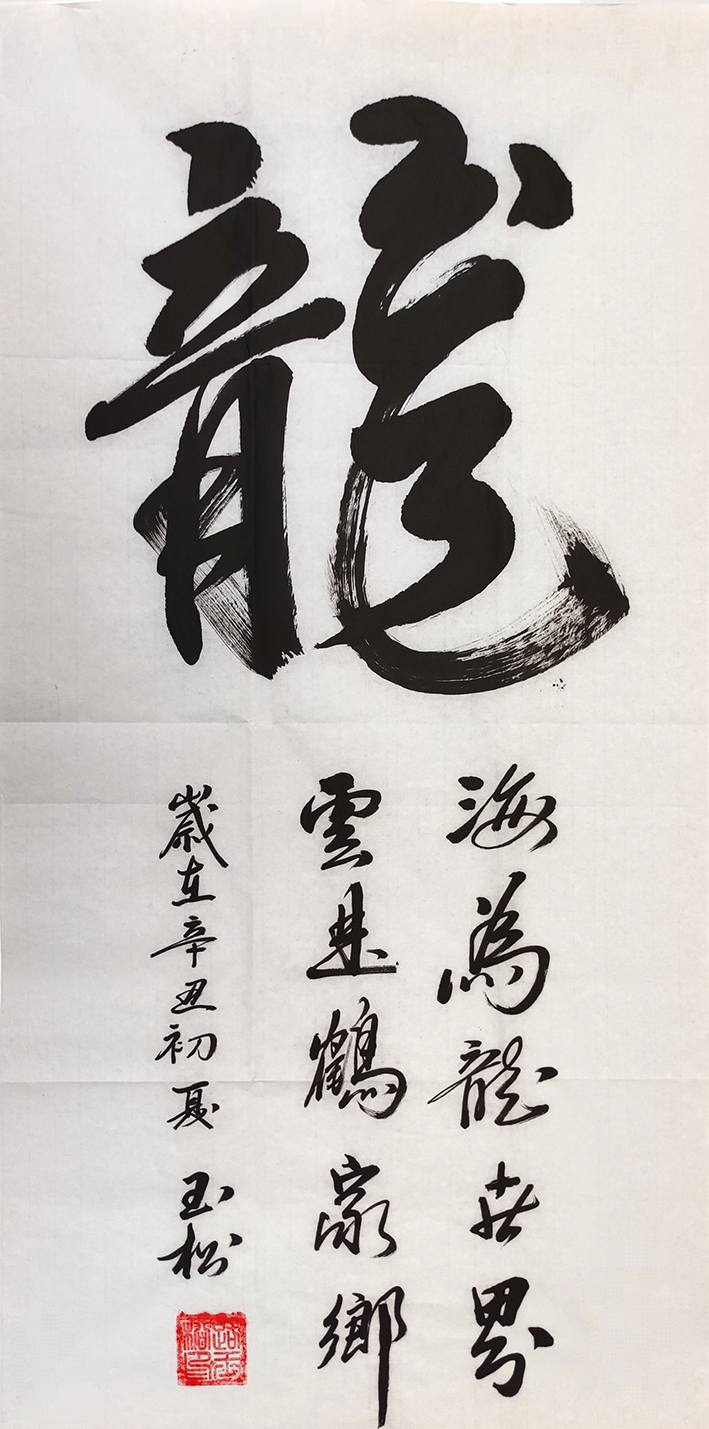 龍
海為龍世界
雲是鶴家鄉
歲在辛丑初夏 玉松